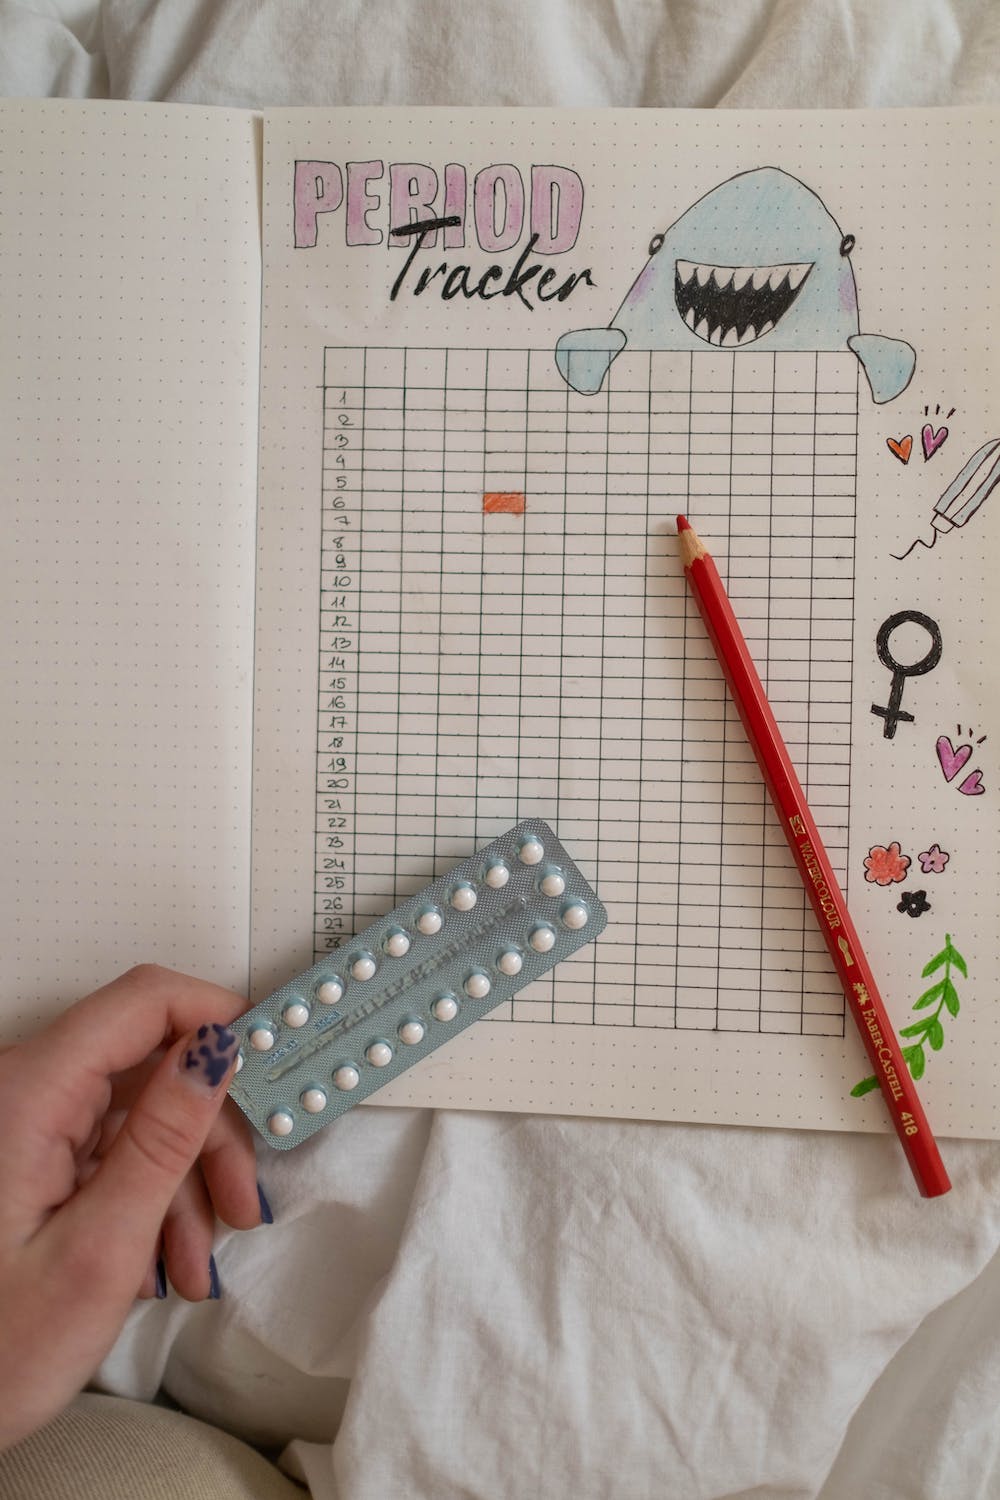 PERIOD
Tracker
1
2
3
4
5
6
7
8
9
10
11
12
13
14
15
16
17
18
19
20
21
22
23
24
25
26
27
28
WATERCOLOUR
FABER-CASTELL 418